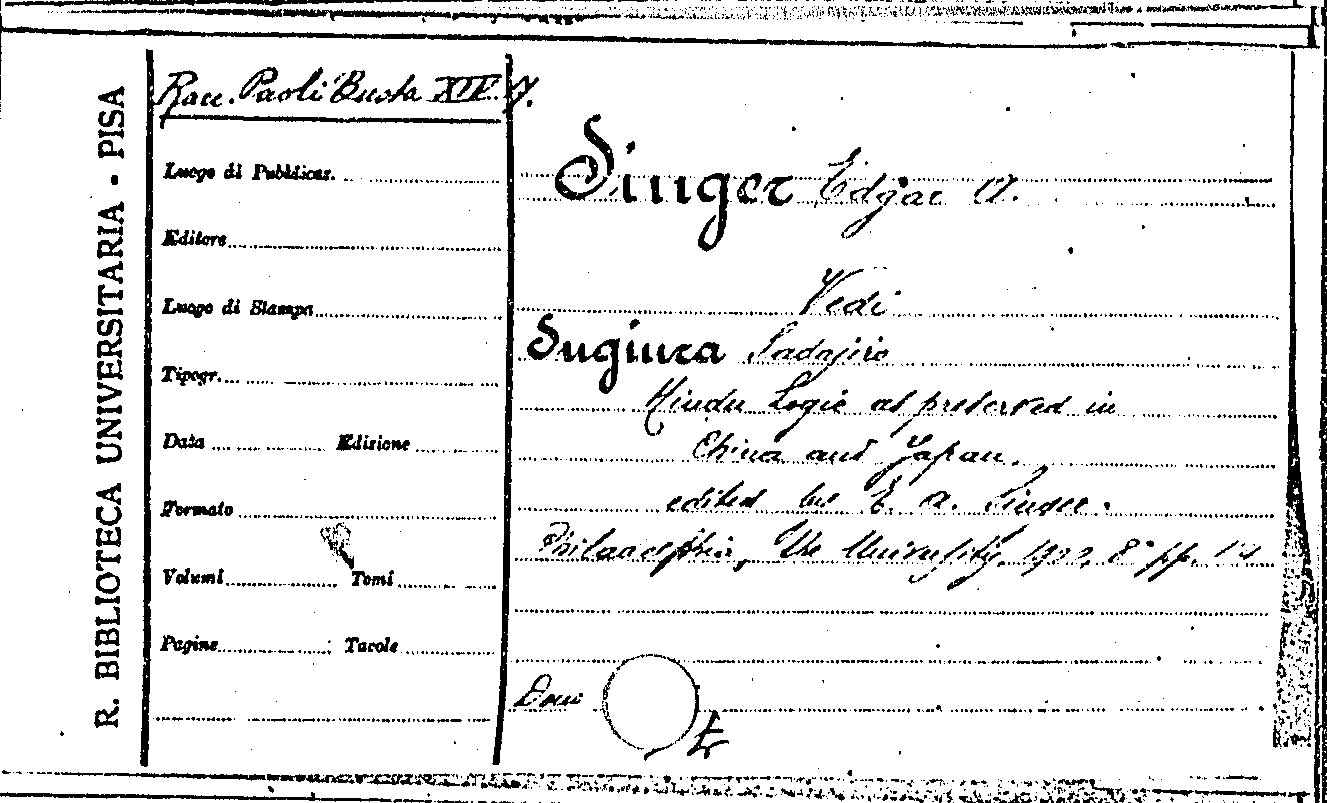 R. BIBLIOTECA UNIVERSITARIA - PISA
Racc. Paoli Busta XIV. 7.
Luogo di Pubblicaz.
Editore
Luogo di Stampa
Tipogr.
Data Edizione
Formato
Volumi Tomi
Pagine Tavole
Singer Edgar A.
Vedi
Sugiura Sadajiro
Hindu Logic as preserved in
China and Japan.
edited by E. A. Singer.
Philadelphia, The University, 8° pp.
Dono